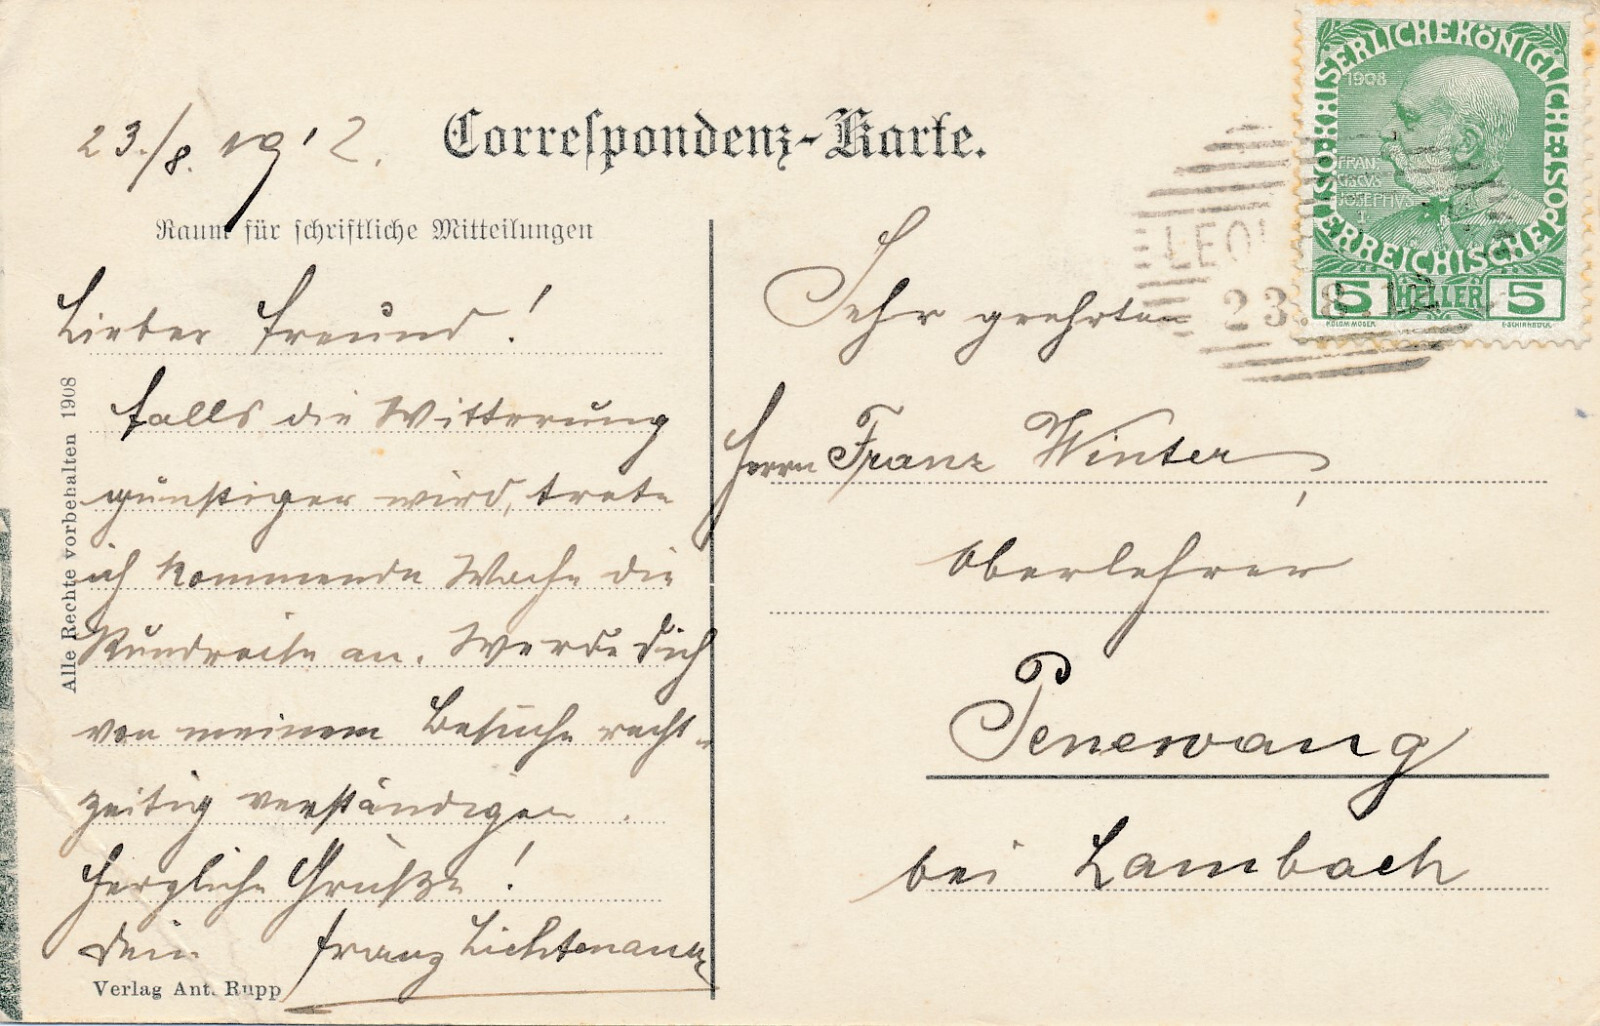 23./8. 19'12.
Correspondenz-Karte.
Raum für schriftliche Mitteilungen
Lieber Freund!
Falls die Witterung
günstiger wird, trete
ich kommende Woche die
Rundreise an. Werde Dich
von meinem Besuche recht-
zeitig verständigen.
Herzliche Grüße!
Dein Franz
Verlag Ant. Rupp
Alle Rechte vorbehalten 1908
KAISERLICHE KÖNIGLICHE
ÖSTERREICHISCHE POST
1908
FRAN
CISCVS
JOSEPHVS
I
5 HELLER 5
KOLOM. MOSER
F. SCHIRNBÖCK
LEO
23.8.12
Sehr geehrten
Herrn Franz Winter,
Oberlehrer
Penewang
bei Lambach